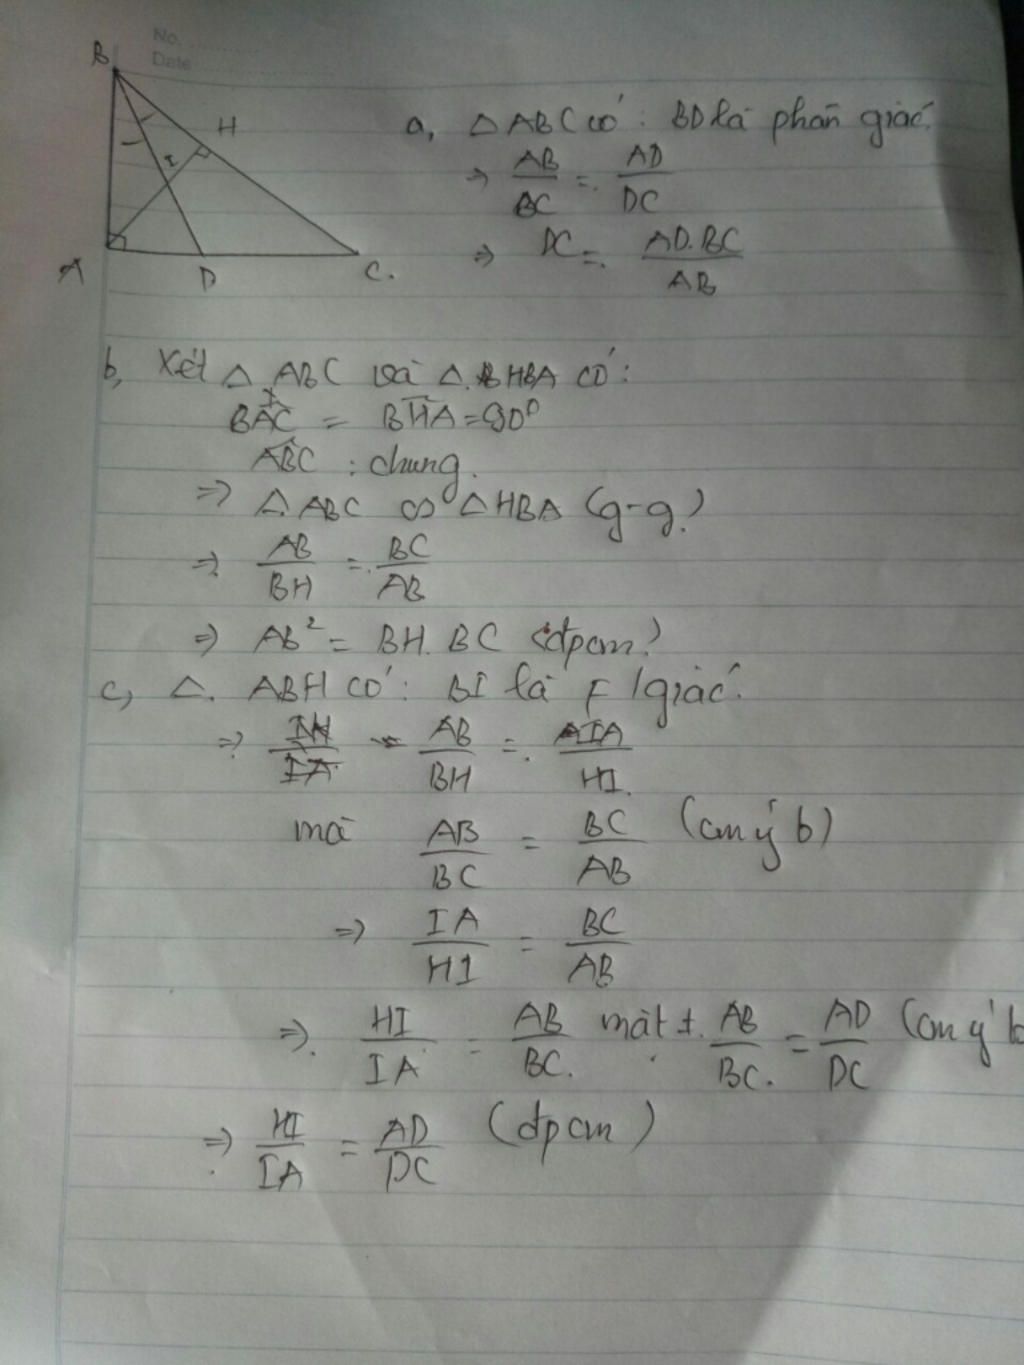 No.
Date
B
H
I
A
D
C.
a, △ABC có : BD là phân giác.
⇒ AB/BC = AD/DC
⇒ DC = AD.BC/AB
b, Xét △ ABC và △ HBA có :
BAC = BHA = 90°
ABC : chung.
⇒ △ ABC ∽ △HBA (g-g)
⇒ AB/BH = BC/AB
⇒ AB² = BH. BC (đpcm)
c, △. ABH có : BI là F/giác.
⇒ AB/BH = IA/HI.
mà AB/BC = BC/AB (cm ý b)
⇒ IA/HI = BC/AB
⇒ HI/IA = AB/BC. mặt ≠. AB/BC. = AD/DC (cm ý
⇒ HI/IA = AD/DC (đpcm)